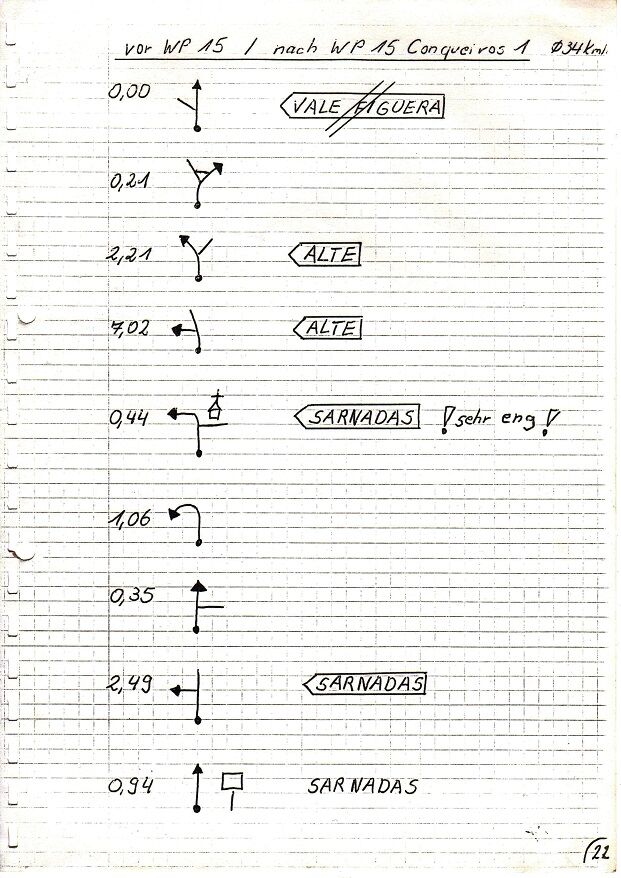 vor WP 15 / nach WP 15 Conqueiros 1 Ø34Km/
0,00 VALE FIGUERA
0,21
2,21 ALTE
7,02 ALTE
0,44 SARNADAS !sehr eng!
1,06
0,35
2,49 SARNADAS
0,94 SARNADAS
22